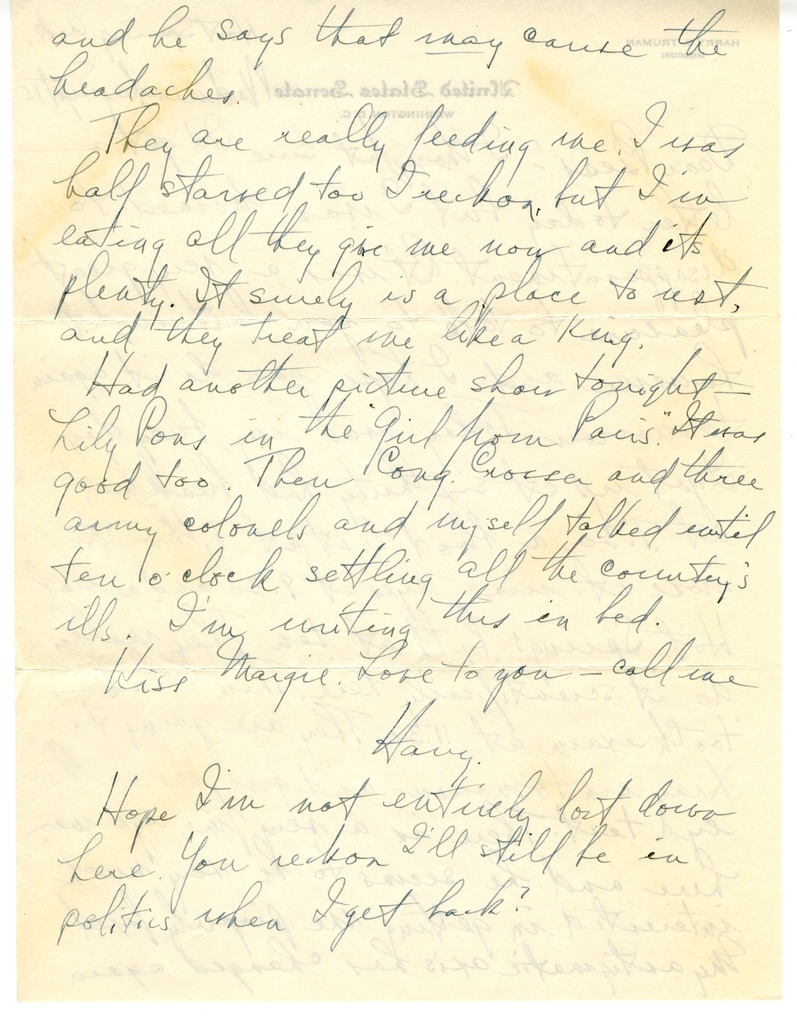 and he says that may cause the
headaches.
They are really feeding me. I was
half starved too I reckon, but I'm
eating all they give me now and its
plenty. It surely is a place to rest,
and they treat me like a King.
Had another picture show tonight –
Lily Pons in the "Girl from Paris." It was
good too. Then Cong. Crosser and three
army colonels and myself talked until
ten o'clock settling all the country's
ills. I'm writing this in bed.
Kiss Margie. Love to you – call me
Harry.
Hope I'm not entirely lost down
here. You reckon I'll still be in
politics when I get back?
HARRY S. TRUMAN
MISSOURI
United States Senate
WASHINGTON, D.C.